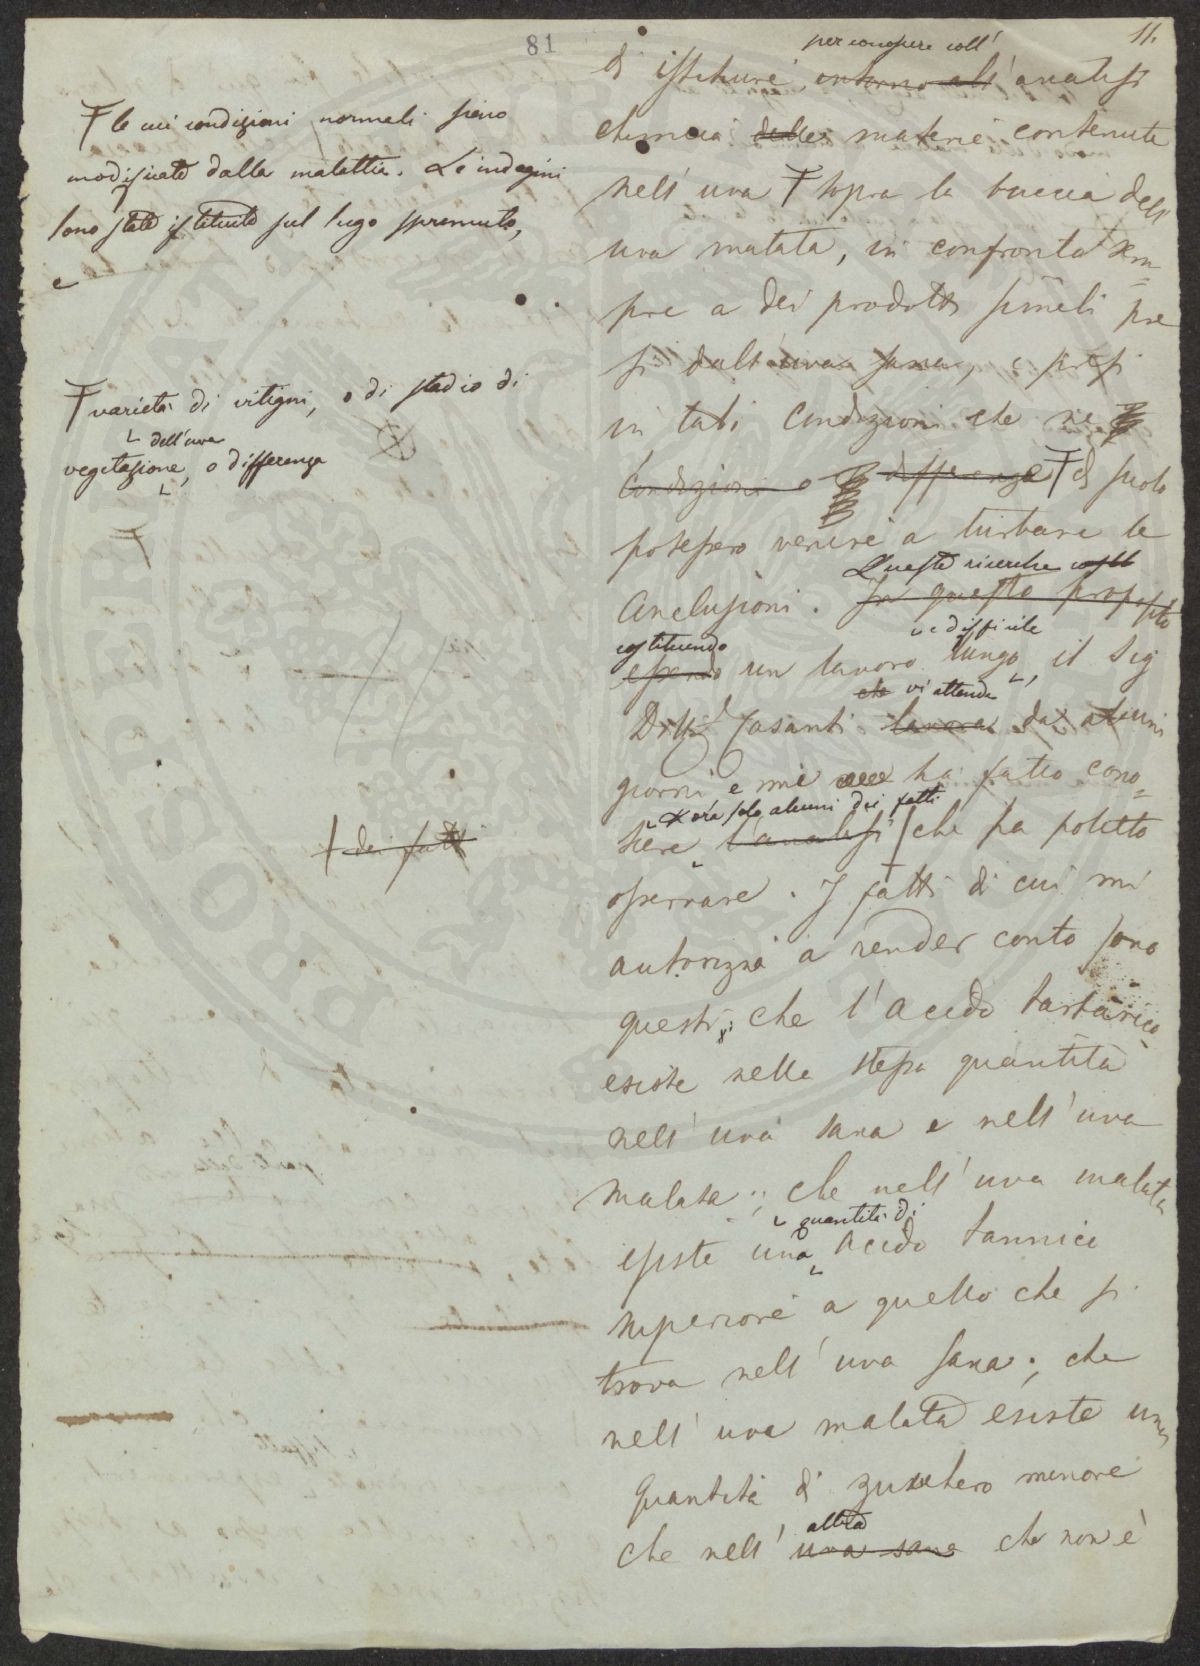 81
11.
Ŧ le cui condizioni normali sieno
modificate dalla malattia. Le indagini
sono state istituite sul sugo spremuto,
e
Ŧ varietà di vitigni, o di stadio di
dell'uva
vegetazione, o differenza
Ŧ
dei fatti
per conoscere coll'
di istituire, intorno all' analisi
chimica delle materie contenute
nell'uva Ŧ sopra la buccia dell'
uva malata, in confronto sem=
pre a dei prodotti simili pre
si dall'uva sana, e presi
in tali condizioni che ne
Condizioni o differenze Ŧ di suolo
potessero venire a turbare le
Conclusioni. In questo proposito
Queste ricerche
costituendo
essendo un lavoro lungo, il Sig
e difficile
che vi attende
Dott. Tosanti lavora da alcuni
giorni e mi ha fatto cono=
ora solo alcuni dei fatti
scere l'analisi che ha potuto
osservare. I fatti di cui mi
autorizza a render conto sono
questi; che l'acido tartarico
esiste nella stessa quantità
nell'uva sana e nell'uva
malata; che nell'uva malata
quantità di
esiste una acido tannico
superiore a quello che si
trova nell'uva sana; che
nell'uva malata esiste una
quantità di zucchero minore
altra
che nell'uva sana che non è